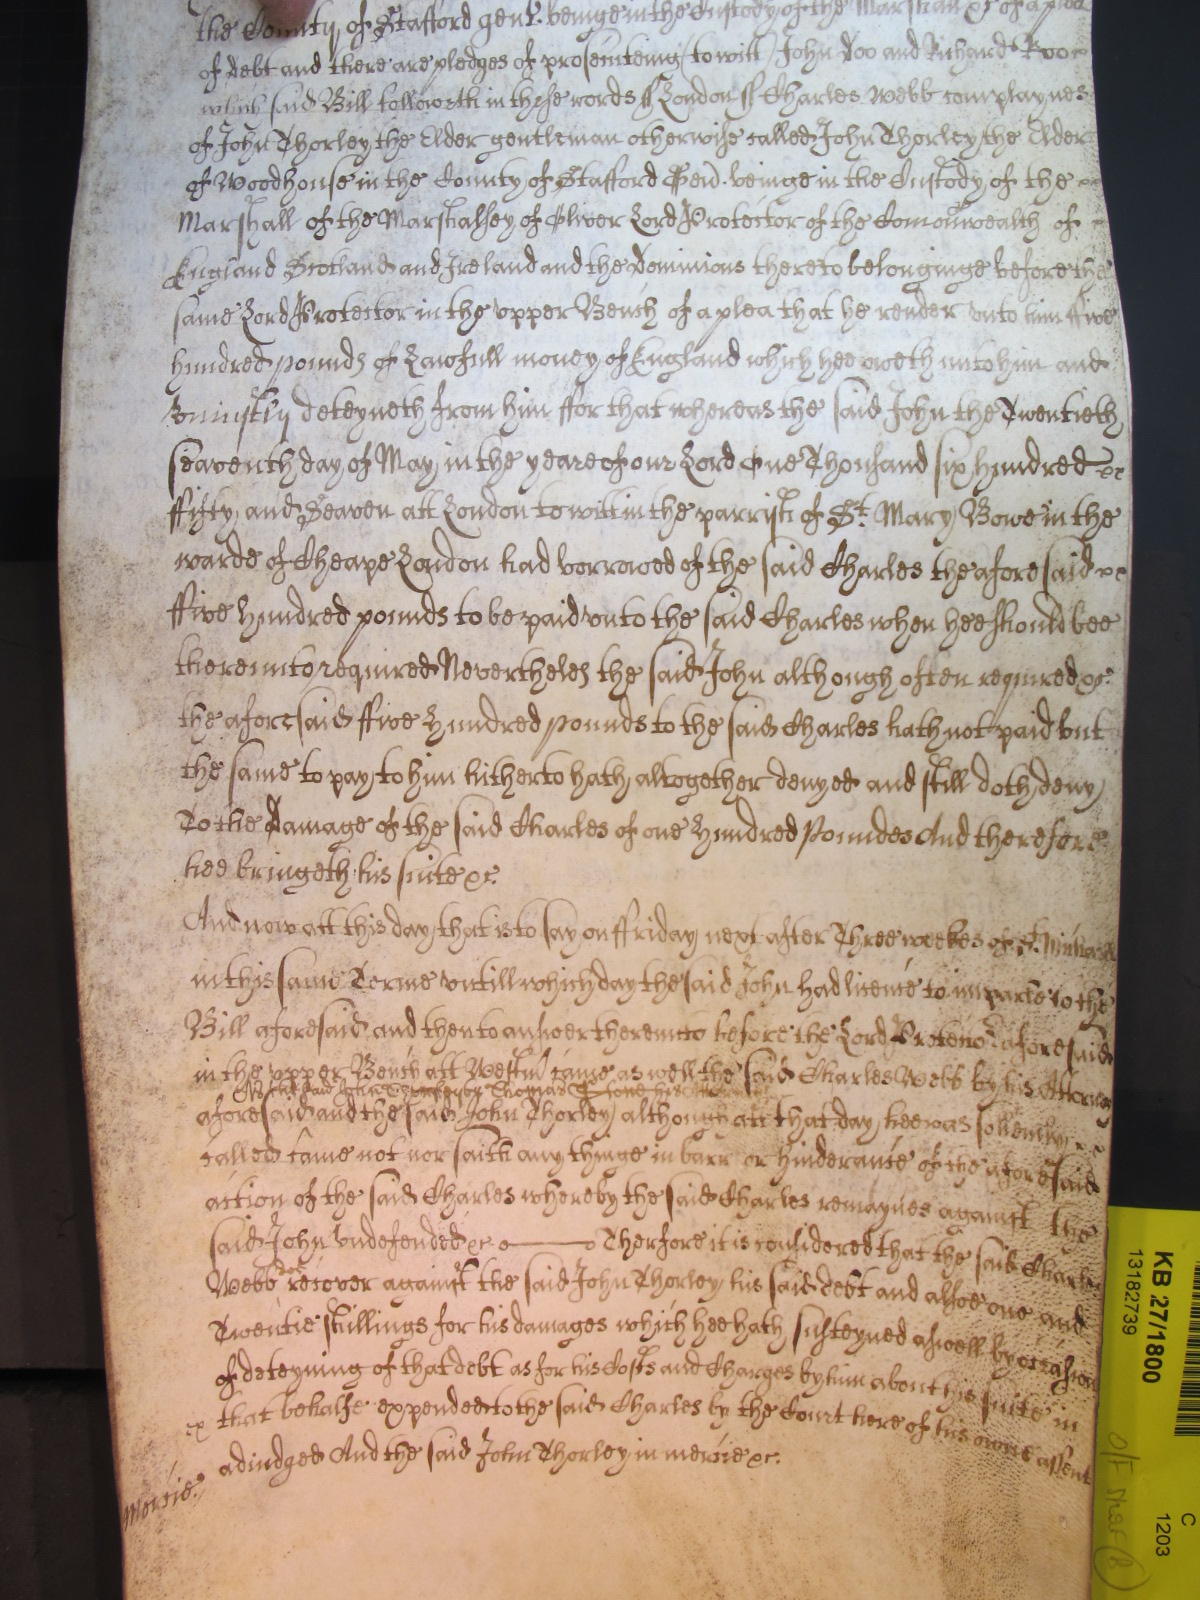 the County of Stafford gent. beinge in the Custody of the Marshall &c of a plea
of debt and there are pledges of prosecuteing (to witt) John Doo and Richard Roo &c
which said Bill followeth in these words ss London ss Charles Webb complaynes
of John Thorley the Elder gentleman otherwise called John Thorley the Elder
of Woodhouse in the County of Stafford Gen. beinge in the Custody of the &c
Marshall of the Marshalsey of Oliver Lord Protector of the Comonwealth of
England Scotland and Ireland and the Dominions thereto belonginge before the
same Lord Protector in the vpper Bench of a plea that he render vnto him ffive
hundred pounds of Lawfull money of England which hee oweth unto him and
vniustly deteyneth from him ffor that whereas the said John the Twentieth
seaventh day of May in the yeare of our Lord One Thousand six hundred &c
ffifty and Seaven att London to witt in the parrish of St. Mary Bowe in the
warde of Cheape London had borrowed of the said Charles the aforesaid &c
ffive Hundred pounds to be paid vnto the said Charles when hee should bee
thereunto required Nevertheles the said John although often required &c.
the aforesaid ffive Hundred pounds to the said Charles hath not paid but
the same to pay to him hitherto hath altogether denyed and still doth deny
To the Damage of the said Charles of one Hundred Poundes And therefore
hee bringeth his suite &c.
And now att this day that is to say on ffriday next after Three weekes of St. Michael
in this same Terme vntill which day the said John had licence to imparle to the
Bill aforesaid and then to answer thereunto before the Lord Protector aforesaid
in the vpper Bench att Westm came as well the said Charles Webb by his Attorney
As the said John Thorley by Thomas his
aforesaid and the said John Thorley although att that day hee was solemnly
called came not nor saith any thinge in barr or hinderance of the aforesaid
action of the said Charles whereby the said Charles remaynes against the
said John vndefended &c. Therfore it is considered that the said Charles
Webb doe recover against the said John Thorley his said debt and alsoe one and
Twentie shillings for his damages which hee hath susteyned aswell by occasion
of deteyning of that debt as for his Costs and Charges by him about his suite in
that behalfe expended to the said Charles by the Court here of his owne assent
adiudged And the said John Thorley in mercie &c.
Mercie.
KB 27/1800
13182739
C
1203